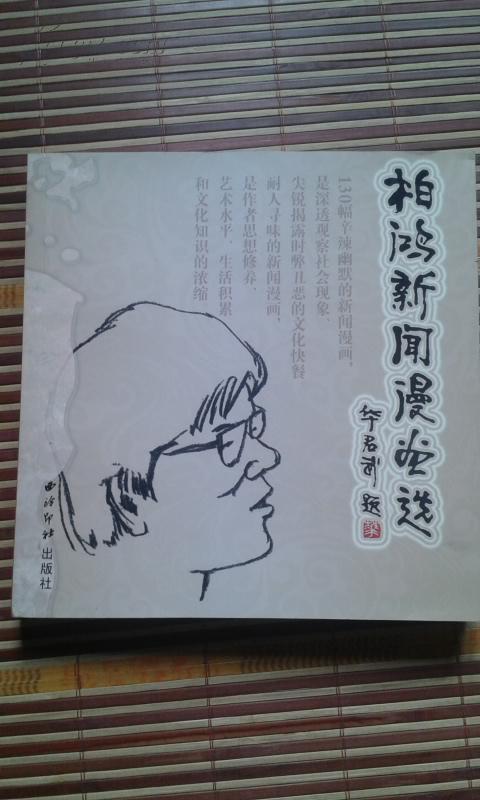 柏鸿新闻漫画选
华君武题
130幅辛辣幽默的新闻漫画，
是深透观察社会现象、
尖锐揭露时弊丑恶的文化快餐
耐人寻味的新闻漫画，
是作者思想修养、
艺术水平、生活积累
和文化知识的浓缩
西泠印社出版社